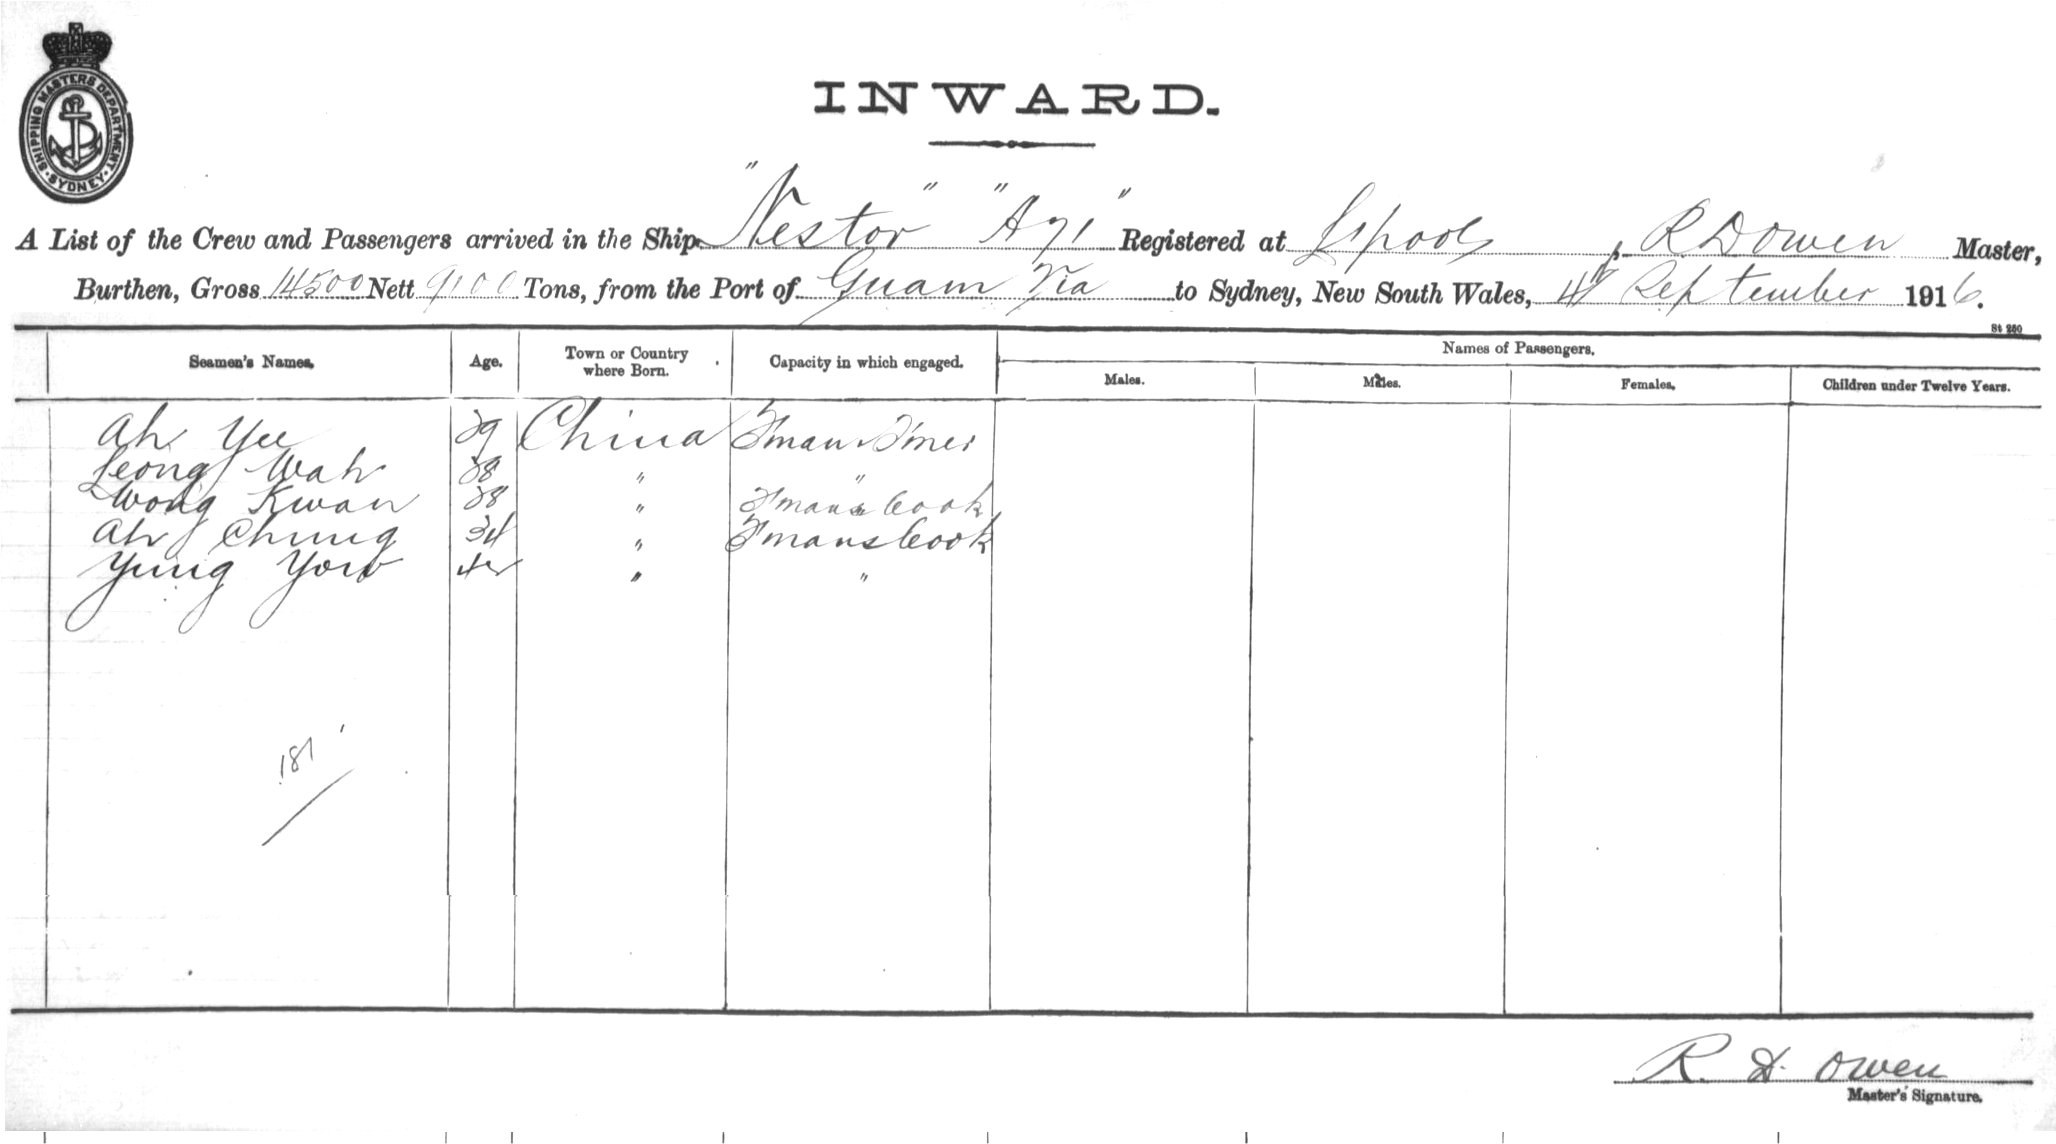 SHIPPING MASTERS DEPARTMENT
SYDNEY
INWARD.
A List of the Crew and Passengers arrived in the Ship "Nestor" "A71" Registered at L'pool, R D Owen Master,
Burthen, Gross 14500 Nett 9100 Tons, from the Port of Guam Via to Sydney, New South Wales, 4th September 1916.
St 280
Seamen's Names. Age. Town or Country where Born. Capacity in which engaged. Names of Passengers.
Males. Males. Females. Children under Twelve Years.
Ah Yee 29 China F'man & T'mer
Leong Wah 28 " "
Wong Kwan 28 " F'mans Cook
Ah Chung 34 " F'mans Cook
Yung Yow 42 " "
181
R. D. Owen
Master's Signature.